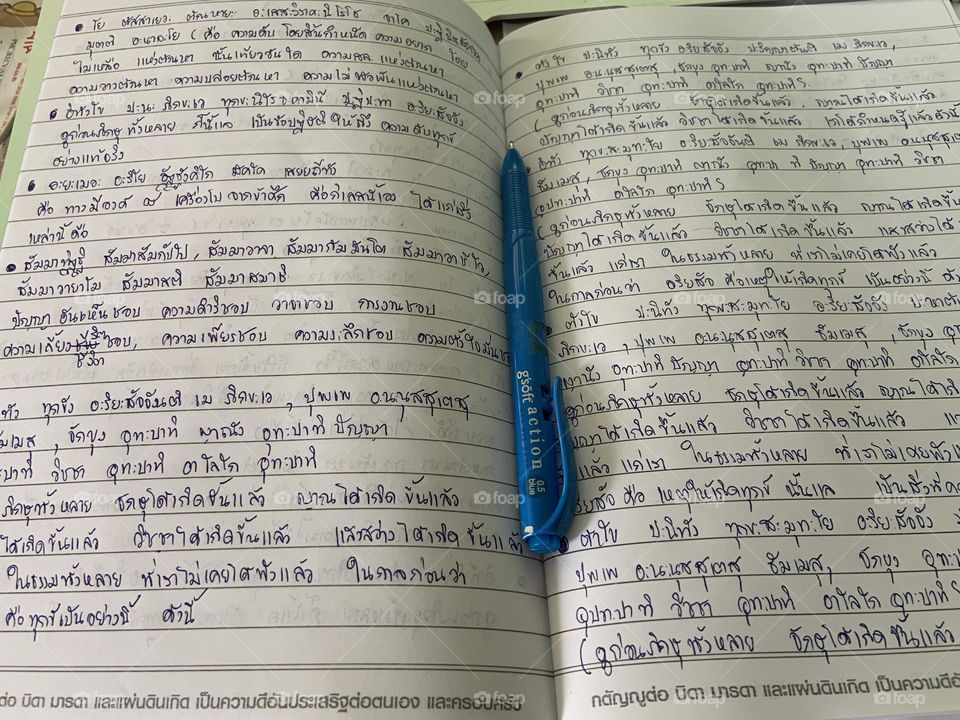 โย ตัสสาเยวะ ตัณหายะ อะเสสะวิราคะนิโรโธ จาโค
มุตติ อะนาละโย (คือ ความดับ โดยสิ้นกำหนัด ความอยาก โดย
ไม่เหลือ แห่งตัณหา นั้นเทียวอันใด ความสละ แห่งตัณหา
ความวางตัณหา ความปล่อยตัณหา ความไม่
อิทังโข ปะนะ ภิกขะเว ทุกขะนิโรธะคามินี ปฏิปะทา อะริยะสัจจัง
ดูก่อนภิกษุทั้งหลาย ก็นี้แล เป็นข้อปฏิบัติให้ถึง ความดับทุกข์
อย่างแท้จริง
อะยะเมวะ อะริโย อัฏฐังคิโก มัคโค เสยยะถีทัง
คือ ทางมีองค์ ๘ เครื่องไปจากข้าศึก คือกิเลสนี้เอง ได้แก่สิ่ง
เหล่านี้คือ
สัมมาทิฏฐิ สัมมาสังกัปโป, สัมมาวาจา สัมมากัมมันโต สัมมาอาชีโว,
สัมมาวายาโม สัมมาสติ สัมมาสมาธิ
ปัญญาอันเห็นชอบ ความดำริชอบ วาจาชอบ การงานชอบ
ความเลี้ยงชีวิตชอบ, ความเพียรชอบ ความระลึกชอบ ความตั้งใจมั่น
ทุกขัง อะริยะสัจจันติ เม ภิกขะเว, ปุพเพ อะนะนุสสุเตสุ
ธัมเมสุ, จักขุง อุทะปาทิ ญาณัง อุทะปาทิ ปัญญา
อุทะปาทิ วิชชา อุทะปาทิ อาโลโก อุทะปาทิ
ภิกษุทั้งหลาย จักษุได้เกิดขึ้นแล้ว ญาณได้เกิดขึ้นแล้ว
ได้เกิดขึ้นแล้ว วิชชาได้เกิดขึ้นแล้ว แสงสว่างได้เกิดขึ้นแล้ว
ในธรรมทั้งหลาย ที่เราไม่เคยได้ฟังแล้ว ในกาลก่อนว่า
คือทุกข์เป็นอย่างนี้ ดังนี้
ต่อ บิดา มารดา และแผ่นดินเกิด เป็นความดีอันประเสริฐต่อตนเอง และครอบครัว
gsoft action 0.5 blue
ตังโข ปะนิทัง ทุกขัง อะริยะสัจจัง ปะริญญาตันติ เม ภิกขะเว,
ปุพเพ อะนะนุสสุเตสุ ธัมเมสุ จักขุง อุทะปาทิ ญาณัง อุทะปาทิ ปัญญา
อุทะปาทิ วิชชา อุทะปาทิ อาโลโก อุทะปาทิ
(ดูก่อนภิกษุทั้งหลาย จักษุได้เกิดขึ้นแล้ว ญาณได้เกิดขึ้นแล้ว
ปัญญาได้เกิดขึ้นแล้ว วิชชาได้เกิดขึ้นแล้ว
อิทัง ทุกขะสะมุทะโย อะริยะสัจจันติ เม ภิกขะเว, ปุพเพ อะนะนุสสุเตสุ
ธัมเมสุ, จักขุง อุทะปาทิ ญาณัง อุทะปาทิ ปัญญา อุทะปาทิ วิชชา
อุปทะปาทิ อาโลโก อุทะปาทิ
(ดูก่อนภิกษุทั้งหลาย จักษุได้เกิดขึ้นแล้ว ญาณได้เกิดขึ้น
ปัญญาได้เกิดขึ้นแล้ว วิชชาได้เกิดขึ้นแล้ว แสงสว่างได้
ขึ้นแล้ว แก่เรา ในธรรมทั้งหลาย ที่เราไม่เคยได้ฟังแล้ว
ในกาลก่อนว่า อริยสัจ คือเหตุให้เกิดทุกข์ เป็นอย่างนี้
ตังโข ปะนิทัง ทุกขะสะมุทะโย อะริยะสัจจัง
ภิกขะเว, ปุพเพ อะนะนุสสุเตสุ ธัมเมสุ, จักขุง
ญาณัง อุทะปาทิ ปัญญา อุทะปาทิ วิชชา อุทะปาทิ อาโลโก
ดูก่อนภิกษุทั้งหลาย จักษุได้เกิดขึ้นแล้ว
ปัญญาได้เกิดขึ้นแล้ว วิชชาได้เกิดขึ้นแล้ว
แล้ว แก่เรา ในธรรมทั้งหลาย ที่เราไม่เคยฟัง
คือ เหตุให้เกิดทุกข์ นั้นแล เป็นสิ่งที่
ตังโข ปะนิทัง ทุกขะสะมุทะโย อะริยะสัจจัง
ปุพเพ อะนะนุสสุเตสุ ธัมเมสุ, จักขุง
อุปทะปาทิ วิชชา อุทะปาทิ อาโลโก อุทะปาทิ
(ดูก่อนภิกษุทั้งหลาย จักษุได้เกิดขึ้นแล้ว
กตัญญูต่อ บิดา มารดา และแผ่นดินเกิด เป็นความดี
foap